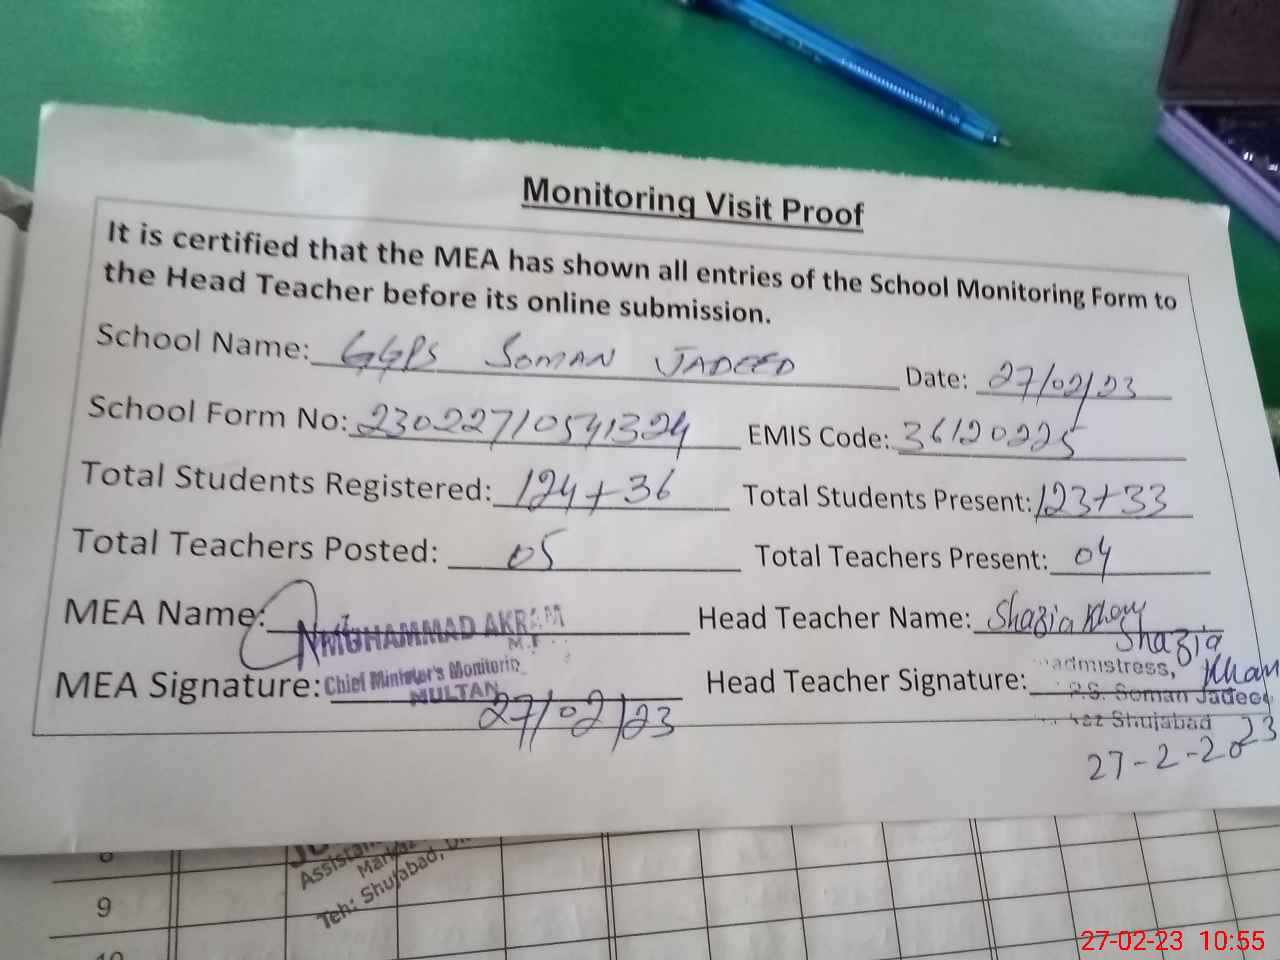 Monitoring Visit Proof
It is certified that the MEA has shown all entries of the School Monitoring Form to
the Head Teacher before its online submission.
School Name: GGPS SOMAN JADEED Date: 27/02/23
School Form No: 23022710541324 EMIS Code: 36120225
Total Students Registered: 124+36 Total Students Present: 123+33
Total Teachers Posted: 05 Total Teachers Present: 04
MEA Name: MUHAMMAD AKRAM Head Teacher Name: Shazia Khan
Shazia Khan
MEA Signature: Chief Minister's Monitorin Head Teacher Signature: admistress,
MULTAN P.S. Soman Jadeed
27/02/23 Shujabad
27-2-2023
Assista
Marka
Teh: Shujabad,
9
10
27-02-23 10:55